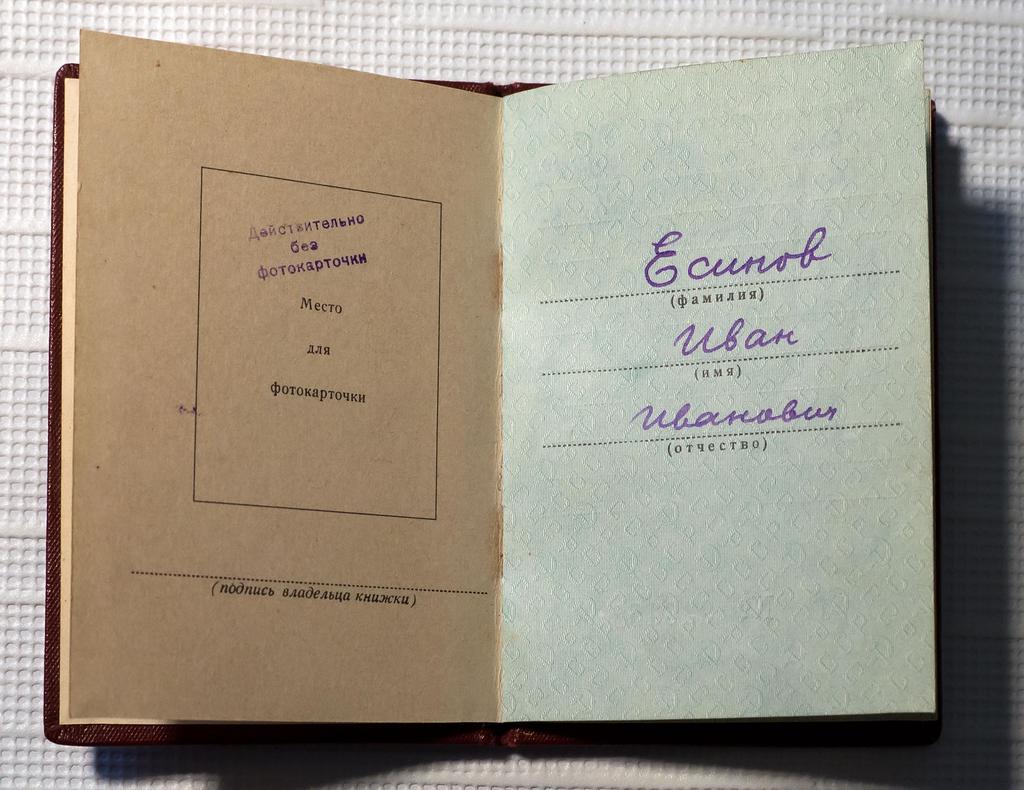 Действительно
без
фотокарточки
Место
для
фотокарточки
(подпись владельца книжки)
Есинов
(фамилия)
Иван
(имя)
Иванович
(отчество)